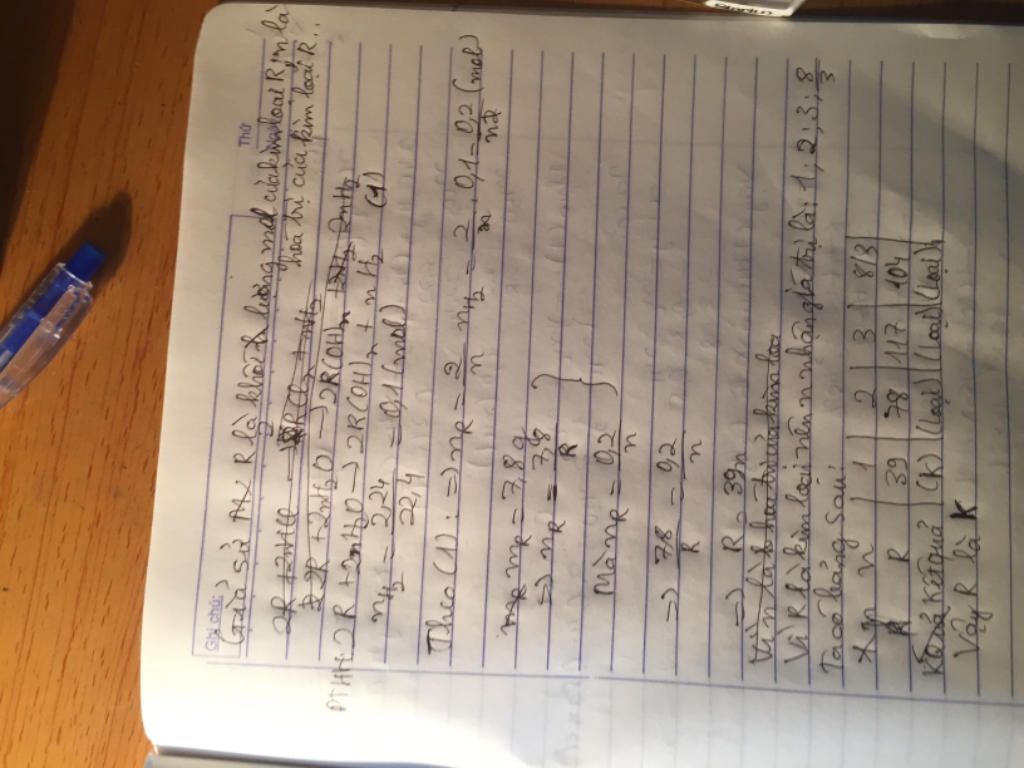 Ghi chú: Thứ
Giả sử R là khối lượng mol của kim loại R, n là
hóa trị của kim loại R.
2R + 2nHCl → 2RCln + nH2
2R + 2nH2O → 2R(OH)n
PTHH: 2R + 2nH2O → 2R(OH)n + nH2 (1)
nH2 = 2,24/22,4 = 0,1 (mol)
Theo (1): ⇒ nR = 2/n nH2 = 2/n . 0,1 = 0,2/n (mol)
mR = 7,8g
⇒ nR = 7,8/R
Mà nR = 0,2/n
⇒ 7,8/R = 0,2/n
⇒ R = 39n
Vì n là hóa trị của kim loại
Vì R là kim loại nên n nhận giá trị là: 1, 2; 3; 8/3
Ta có bảng sau:
n | 1 | 2 | 3 | 8/3
R | 39 | 78 | 117 | 104
Kết quả | (K) | (loại) | (loại) | (loại)
Vậy R là K